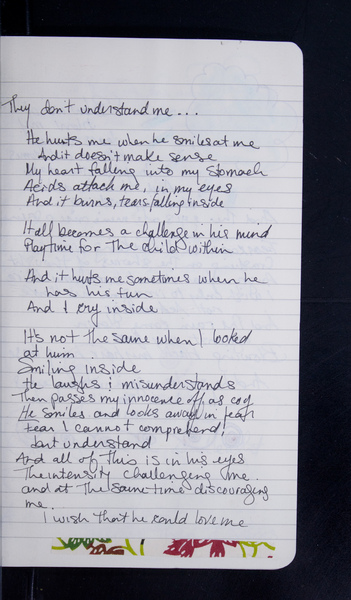 They don't understand me...
He hurts me when he smiles at me
And it doesn't make sense
My heart falling into my stomach
Acids attack me, in my eyes
And it burns, tears falling inside
It all becomes a challenge in his mind
Playtime for the child within
And it hurts me sometimes when he
has his fun
And I cry inside
It's not the same when I looked
at him
Smiling inside
He laughs & misunderstands
Then passes my innocence off as coy
He smiles and looks away in fear
fear I cannot comprehend,
don't understand
And all of this is in his eyes
The intensity challenging me
and at the same time discouraging
me
I wish that he could love me